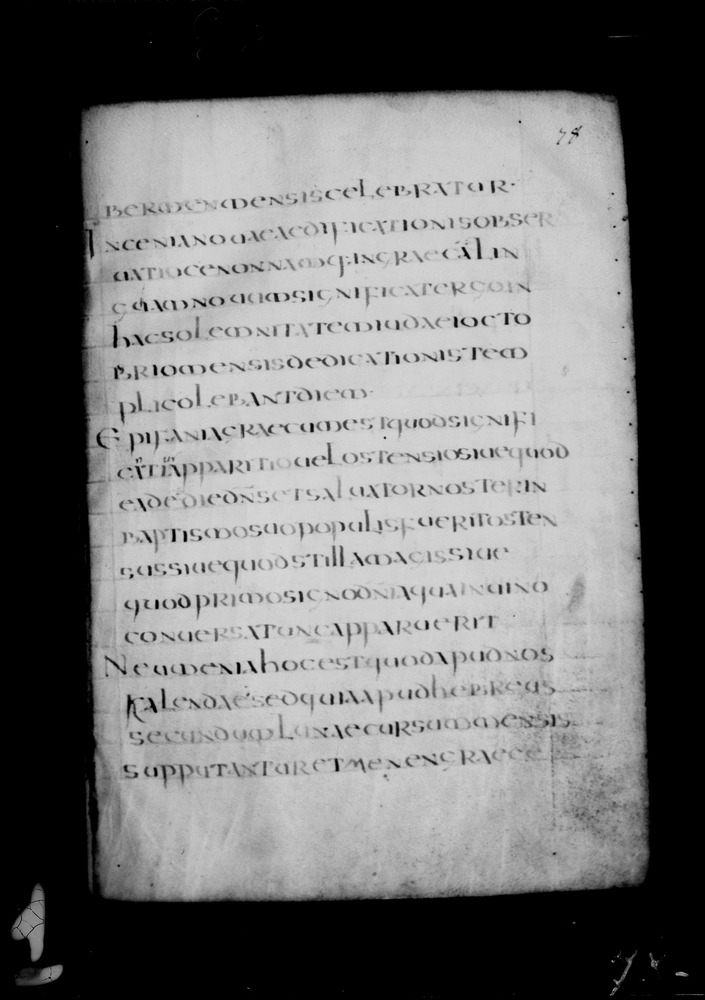 78
BER MENMENSIS CELEBRATUR·
INCENIA NOUA EAEDIFICATIONIS OBSER
UATIO CENON NAMQ· IN GRAECA LIN
GUAM NOUUM SIGNIFICATER GO IN
HAC SOLEMNITATEM IUDAEI OCTO
BRIO MENSIS DEDICATIONIS TEM
PLI COLEBANT DIEM·
EPIFANIA GRAECUM EST QUOD SIGNIFI
CAT APPARITIO UEL OSTENSIO SIUE QUOD
EA DE DIE DNS ET SALUATOR NOSTER IN
BAPTISMO SUO POPULIS FUERIT OSTEN
SUS SIUE QUOD STILLA MAGIS SIUE
QUOD PRIMO SIGNO DNI AQUA IN UINO
CONUERSA TUNC APPARUERIT
NEUMENIA HOC EST QUOD APUD NOS
KALENDAE SED QUIA APUD HEBREUS
SECUNDUM LUNAE CURSUM MENSIS
SUPPUTANTUR ET MENEN GRAECE